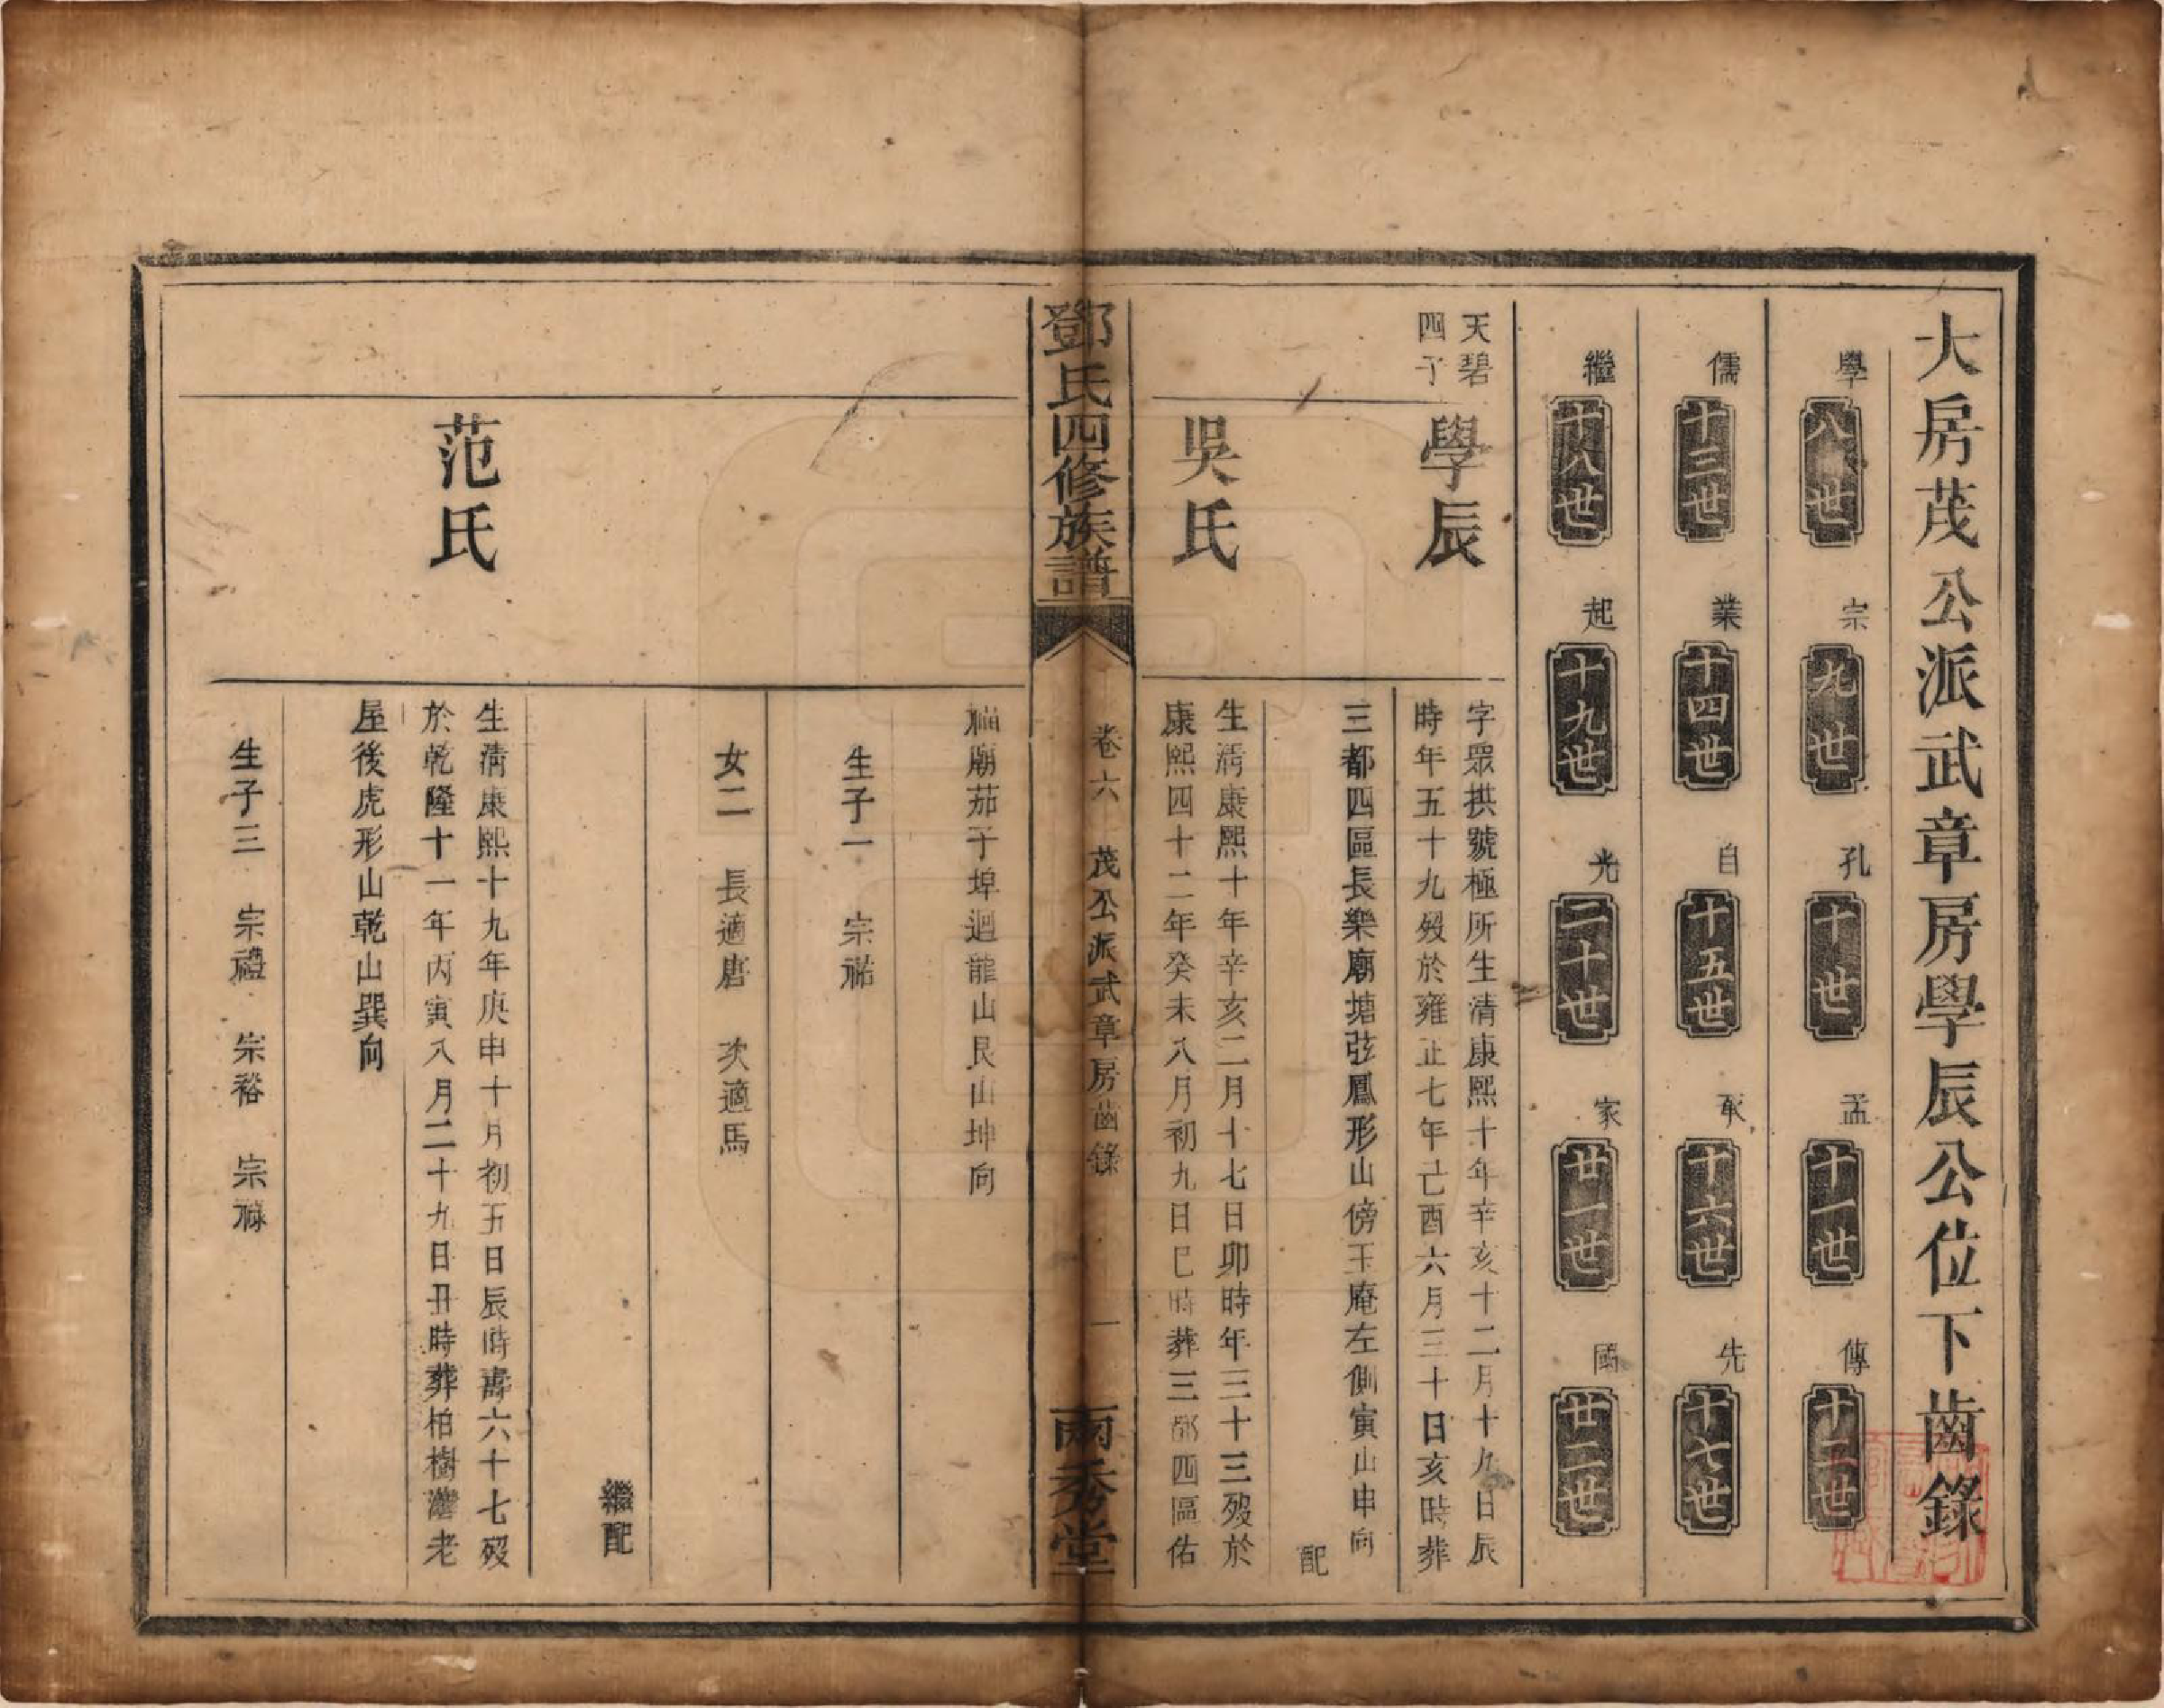 大房茂公派武章房學辰公位下齒錄
學 八世 宗 九世 孔 十世 孟 十一世 傳 十二世
儒 十三世 業 十四世 自 十五世 承 十六世 先 十七世
繼 十八世 起 十九世 光 二十世 家 廿一世 國 廿二世
天碧
四子
學辰
字眾拱號極所生清康熙十年辛亥十二月十九日辰
時年五十九歿於雍正七年己酉六月三十日亥時葬
三都四區長樂廟塘弦鳳形山傍玉庵左側寅山申向
配
吳氏
生清康熙十年辛亥二月十七日卯時年三十三歿於
康熙四十二年癸未八月初九日巳時葬三都四區佑
鄧氏四修族譜
卷六 茂公派武章房齒錄
一
兩秀堂
福廟茄子埠迴龍山艮山坤向
生子一 宗祐
女二 長適唐 次適馬
繼配
范氏
生清康熙十九年庚申十月初五日辰時壽六十七歿
於乾隆十一年丙寅八月二十九日丑時葬柏樹灣老
屋後虎形山乾山巽向
生子三 宗禮 宗裕 宗祿